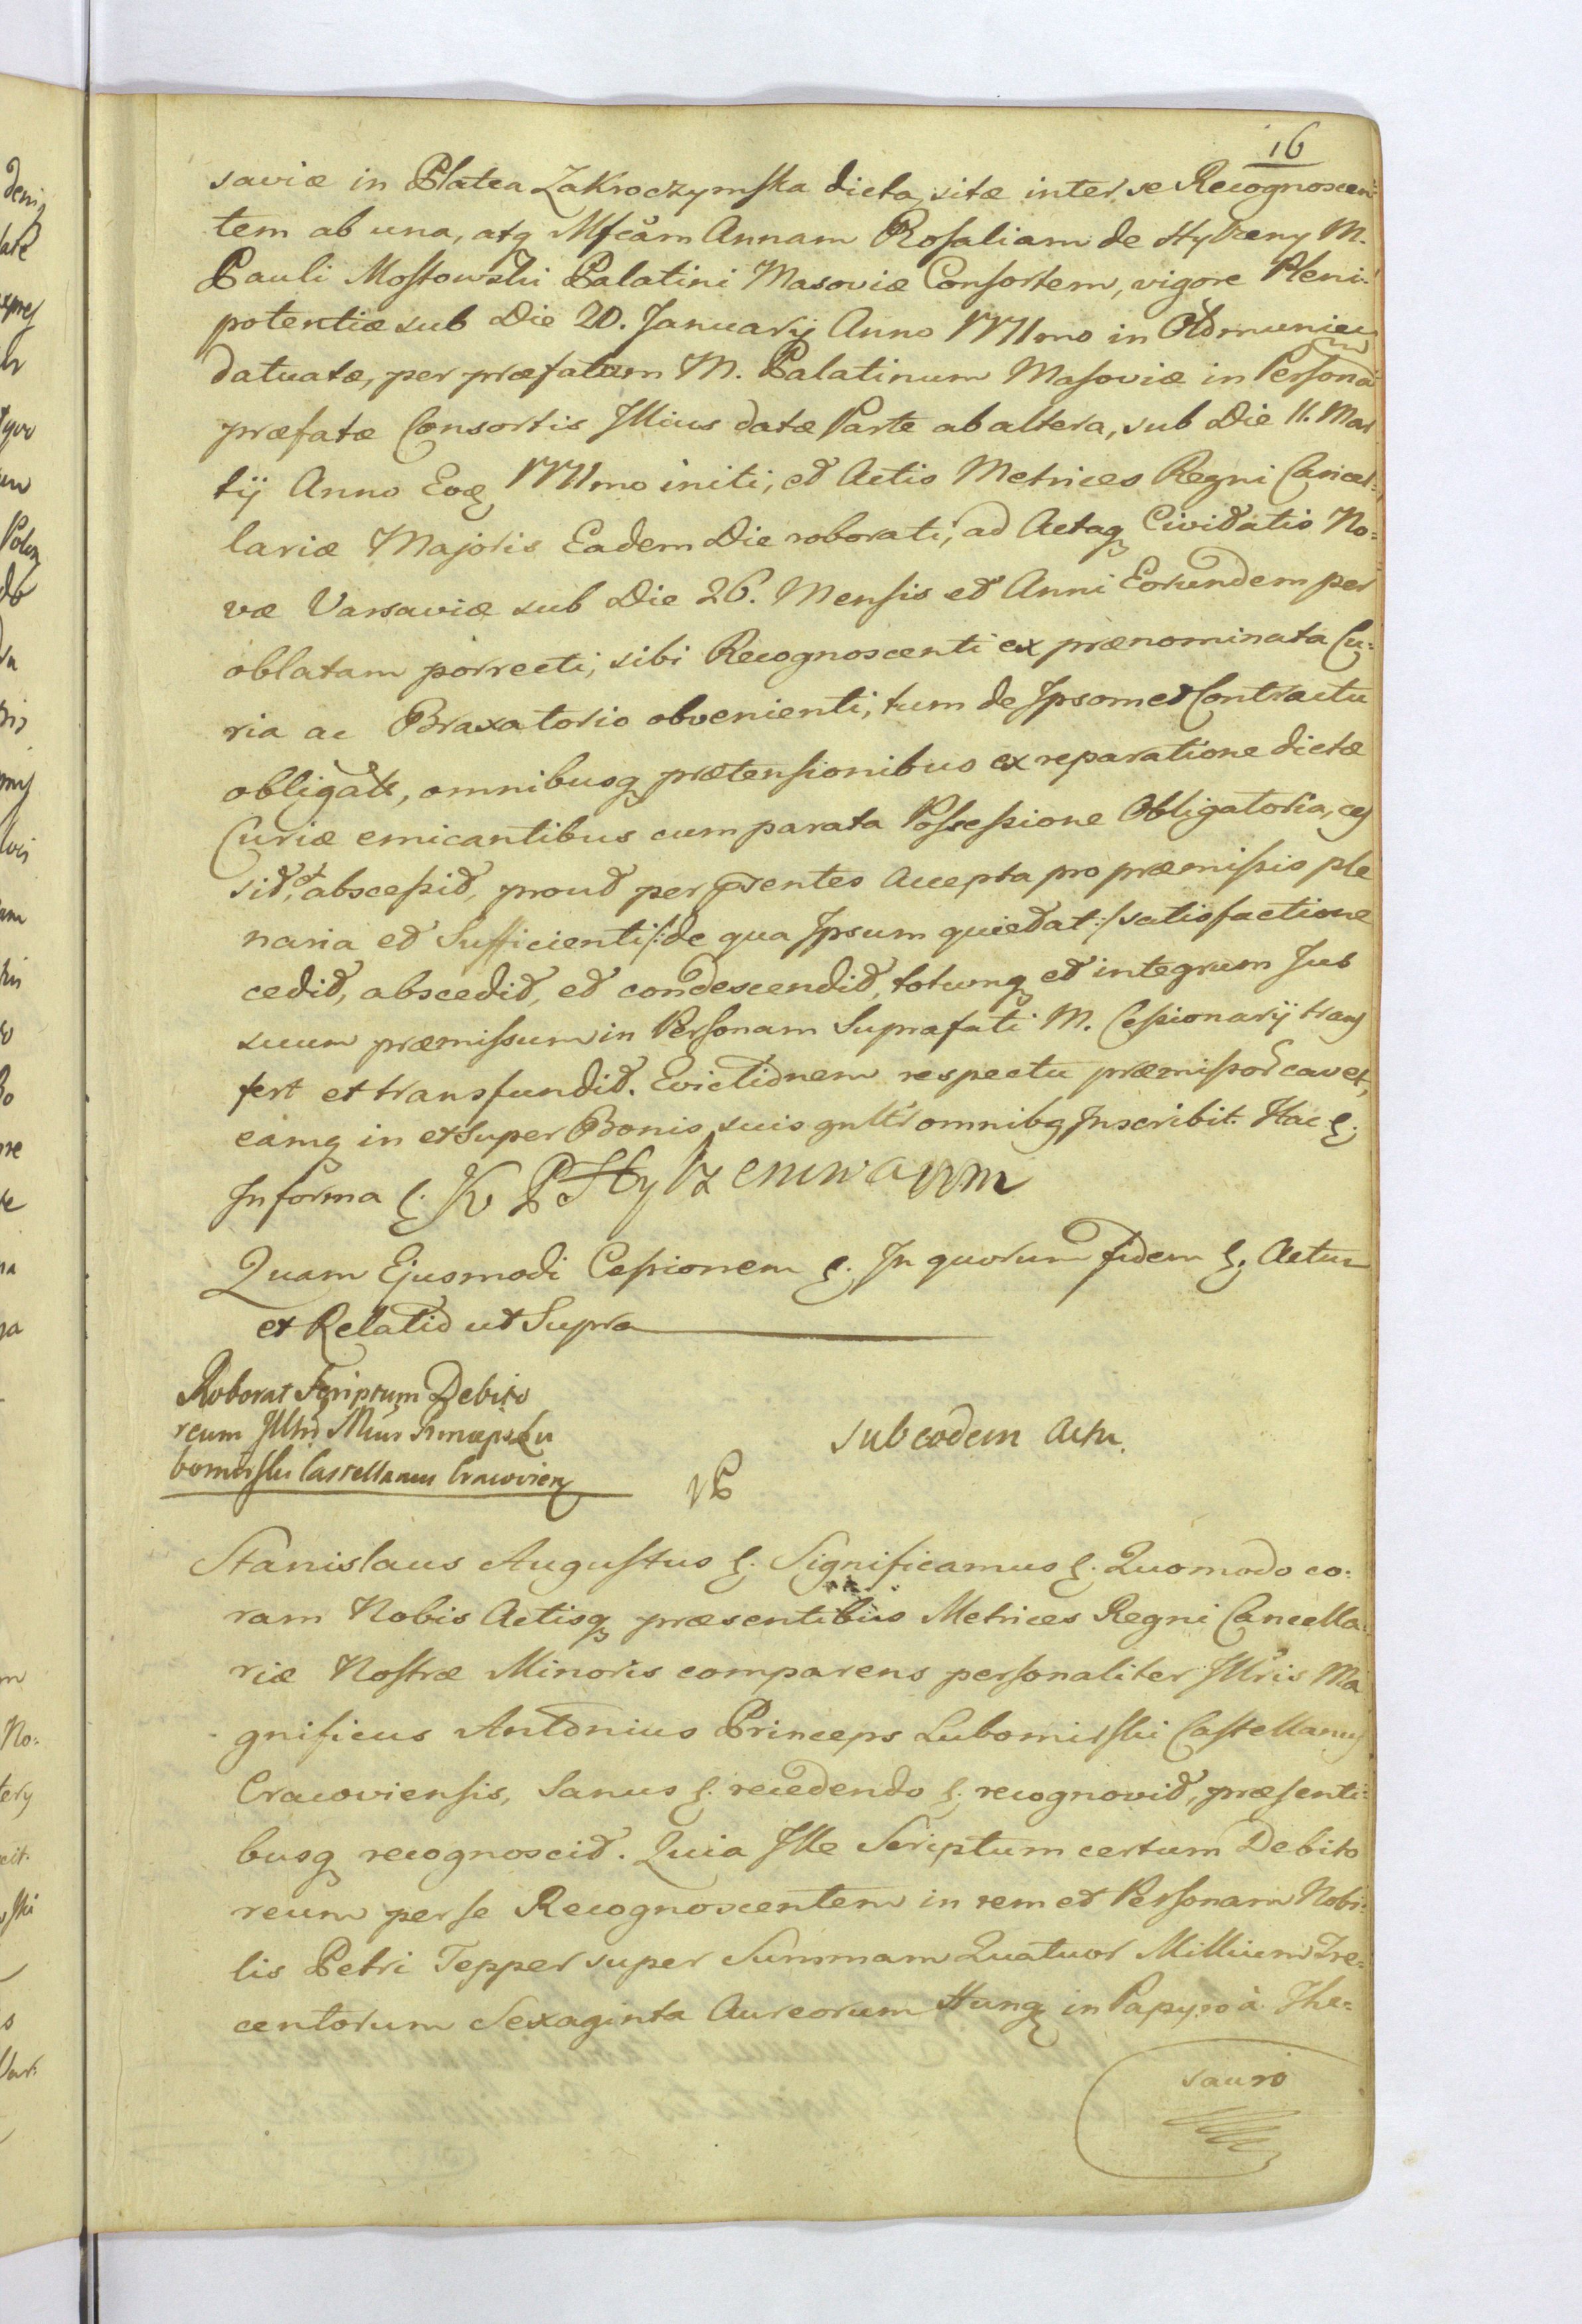 16
saviæ in Platea Zakroczymska dicta, sitæ inter se Recognoscen=
tem ab una, atq Mfcam Annam Rosaliam de Hylzeny M.
Pauli Mostowski Palatini Masoviæ Consortem, vigore Pleni=
potentiæ sub Die 20. Januarij Anno 1771mo in
datuatæ, per præfatum M. Palatinum Masoviæ in Persona
præfatæ Consortis Illius datæ Parte ab altera, sub Die 11. Mar
tij Anno Eoq 1771mo initi, et Actis Metrices Regni Cancel=
lariæ Majoris Eadem Die roborati, ad Actaq Civitatis No=
væ Varsaviæ sub Die 26. Mensis et Anni Eorundem per
oblatam porrecti, sibi Recognoscenti ex prænominata Cu=
ria ac Braxatorio obvenienti, tum de Ipsomet Contractu
, omnibusq prætensionibus ex reparatione dictæ
Curiæ emicantibus cum parata Possessione Obligatoria, ces
sit, et abscessit, prout per psentes Accepta pro præmissis ple
naria et Sufficienti /: de qua Ipsum quietat :/ satisfactione
cedit, abscedit, et condescendit, totumq et integrum Jus
suum præmissum in Personam Suprafati M. Cessionarij trans
fert et transfundit. Evictionem respectu præmissor cavet,
eamq in et super Bonis suis gnltr omnibq Inscribit. Hac
In forma
Quam Ejusmodi Cessionem In quorum fidem Actum
et Relatio ut Supra
Roborat Scriptum Debito
reum Illtris Mcus Lu
bomirski Castellanus Cracovien
sub eodem Actu.
Stanislaus Augustus Significamus Quomodo co=
ram Nobis Actisq præsentibus Metrices Regni Cancella=
riæ Nostræ Minoris comparens personaliter Illtris Ma
gnificus Antonius Princeps Lubomirski Castellanus
Cracoviensis, Sanus recedendo recognovit, præsenti=
busq recognoscit. Quia Ille Scriptum certum Debito
reum per se Recognoscentem in rem et Personam Nobi=
lis Petri Tepper super Summam Quatuor Millium Tre=
centorum Sexaginta Aureorum Hung in Papyro à The=
sauro